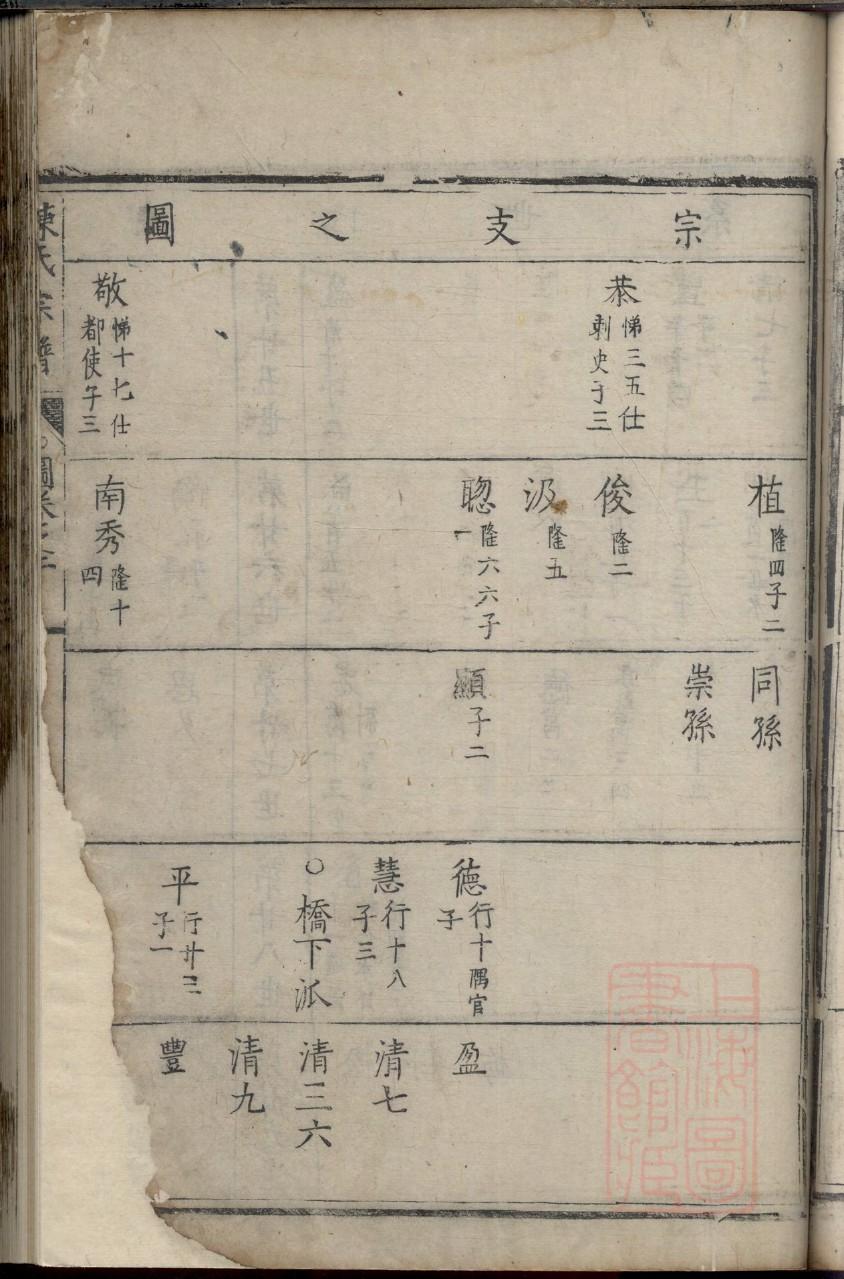 宗支之圖
恭 悌三五仕刺史子三
敬 悌十七仕都使子三
植 隆四子二
俊 隆二
汲 隆五
聦 隆六六子一
南秀 隆十四
同孫
崇孫
顯 子二
德 行十隅官子
慧 行十八子三
○橋下派
平 行廿三子一
盈
清七
清三六
清九
豐
陳氏宗譜
圖卷之
上海圖書館藏